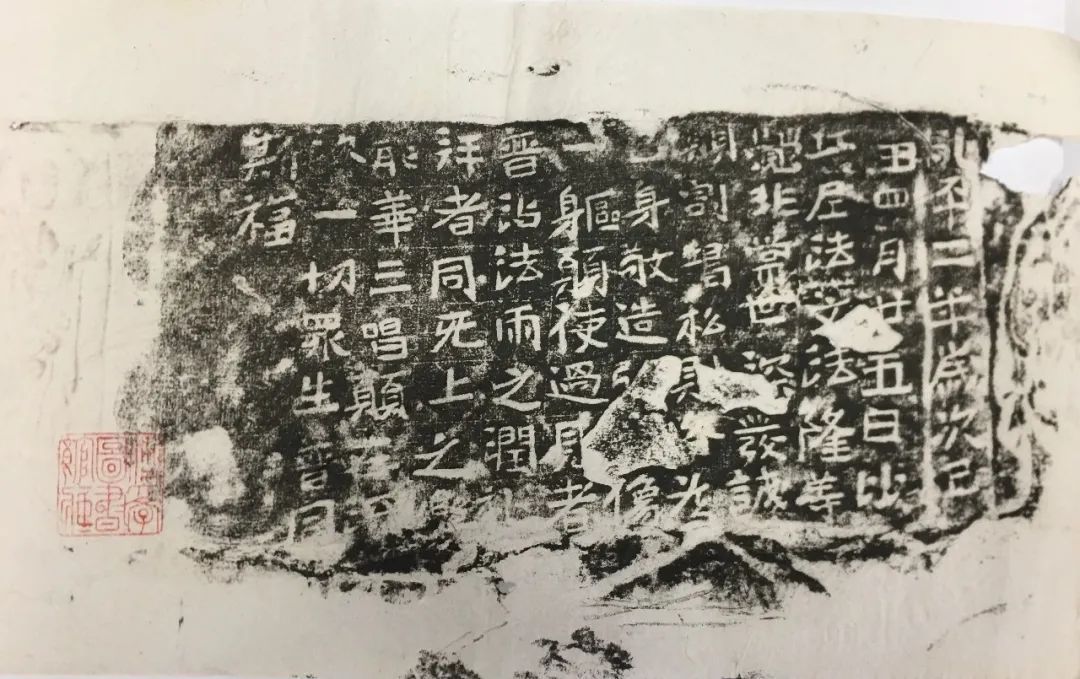 永平二年歲次己
丑四月廿五日比
丘尼法文法隆等
覺非常世深發誠
願割竭私財各為
己身敬造弥像
一軀願使過見者
普沾法雨之潤礼
拜者同无上之
龍華三唱願
次一切眾生普同
斯福